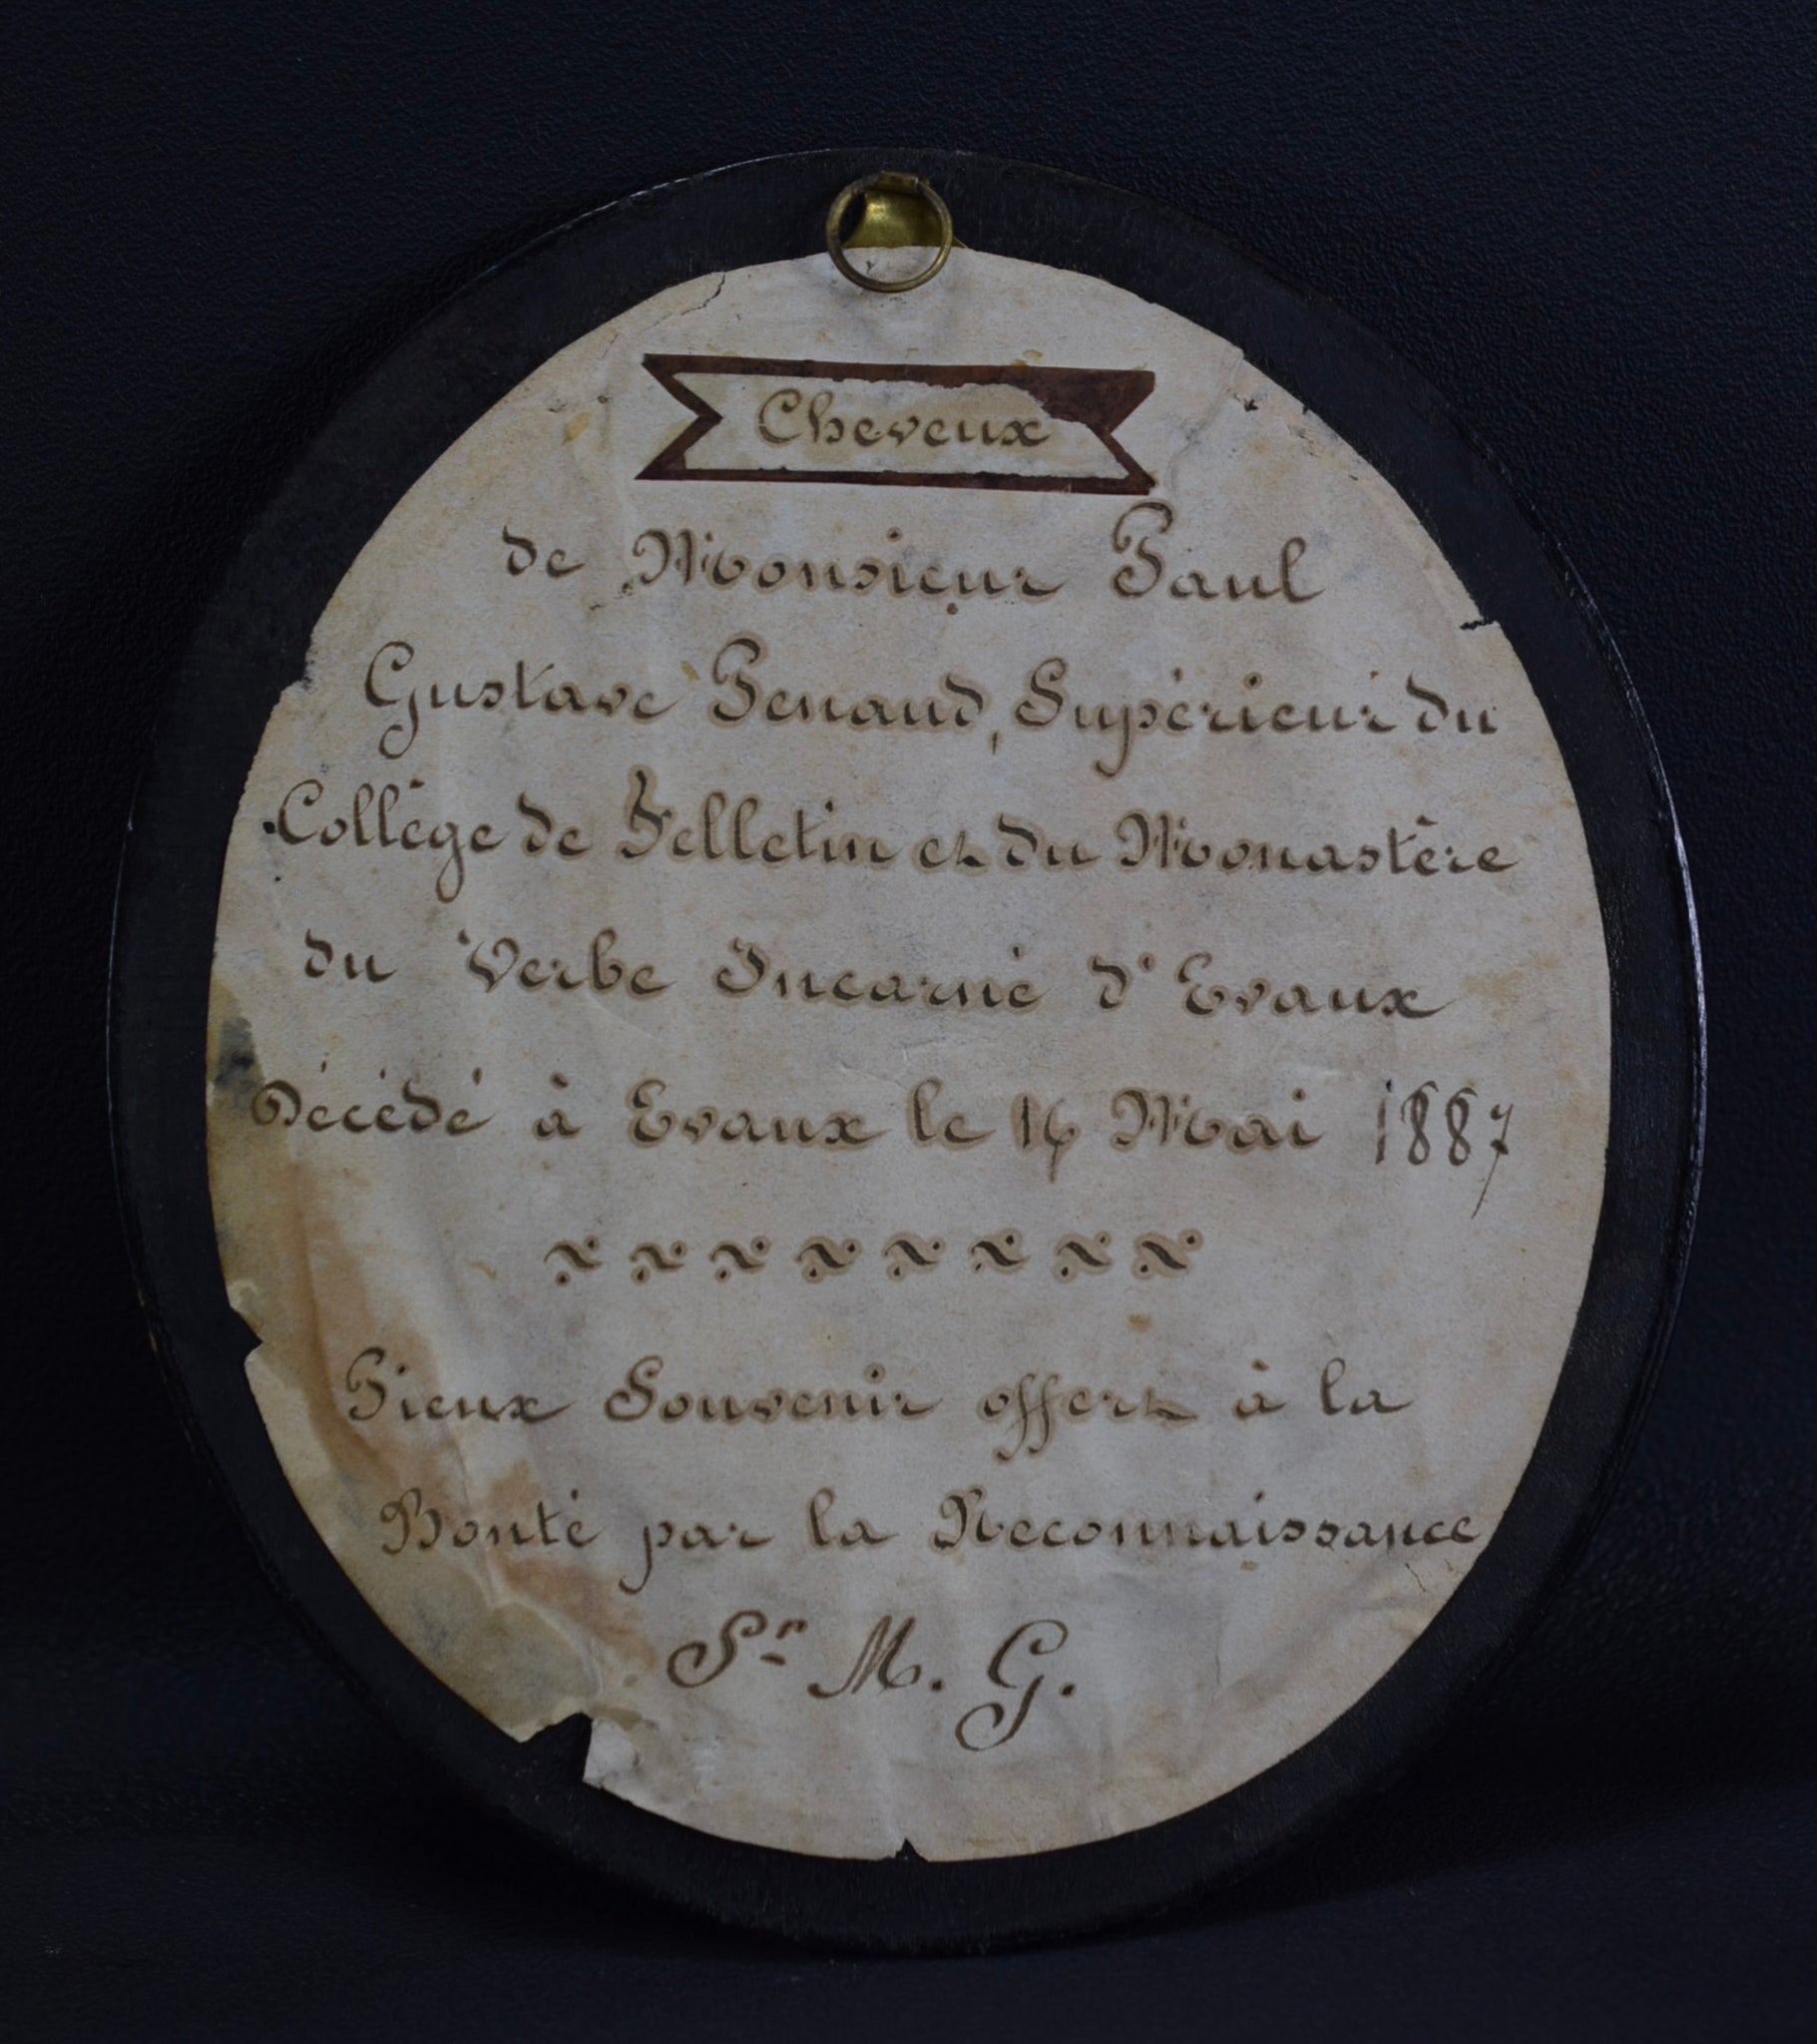 Cheveux
de Monsieur Paul
Gustave Penaud, Supérieur du
Collège de Felletin et du Monastère
du Verbe Incarné d'Evaux
Décédé à Evaux le Mai 1887
Pieux Souvenir offert à la
Bonté par la Reconnaissance
Sr M. G.